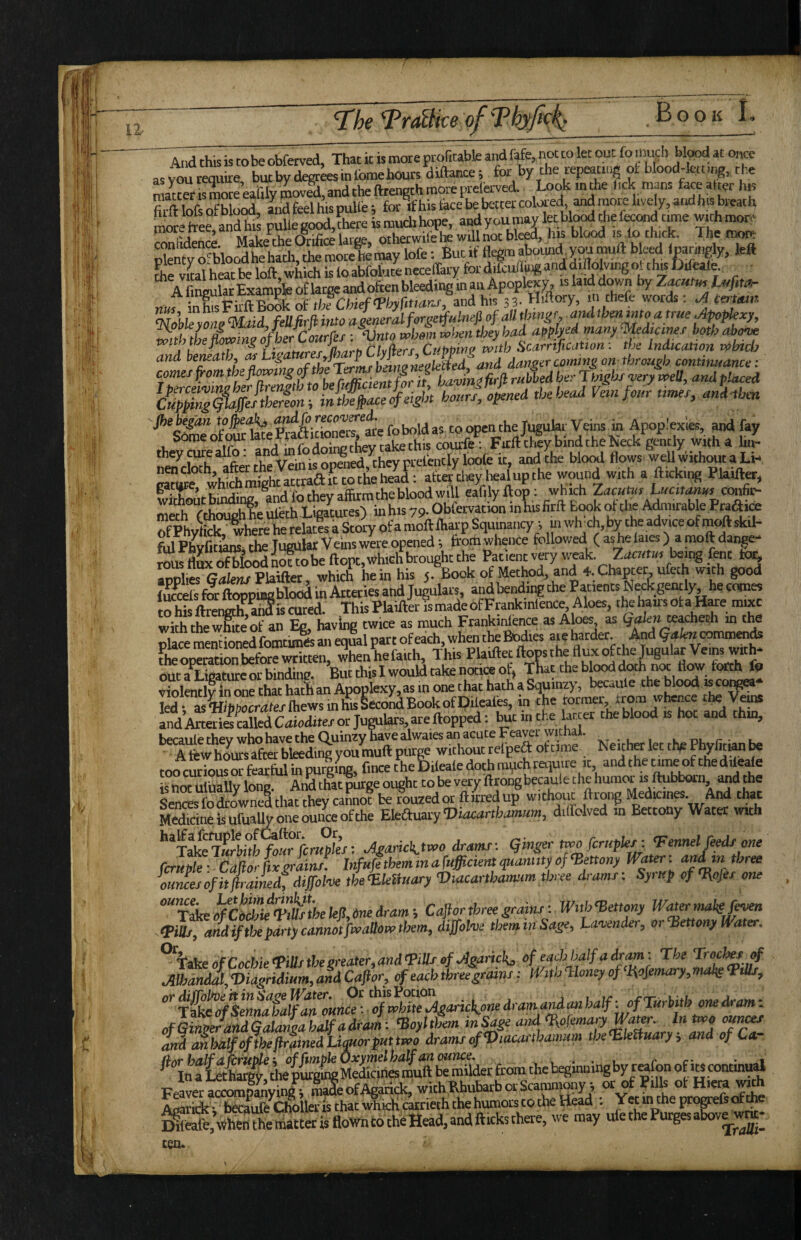 12
The Practice of Physick,
Book I.
And this is to be observed, That it is more profitable and safe, not to let out so much blood at once
as you require, but by degrees in some hours distance; for by the repeating of blood-letting, the
matter is more easily moved, and the strength more preserved. Look in the sick mans face after his
first loss of blood, and feel his pulse; for if his face be better colored, and more lively, and his breath
more free, and his pulse good, there is much hope, and you may let blood the second time with more
confidence. Make the Orifice large, otherwise he will not bleed, his blood is so thick. The more
plenty of blood he hath, the more he may lose: But if flegm abound, you must bleed sparingly, lest
the vital heat be lost, which is so absolute necessary for discussing and dissolving of this Disease.
A singular Example of large and often bleeding in an Apoplexy, is laid down by Zacutus Lusita-
nus, in his First Book of the Chief Physitians, and his 33. History, in these words: A certain
Noble yong Maid, fell first into a general forgetfulness of all things, and then into a true Apoplexy,
with the flowing of her Courses: Unto whom when they had applyed many Medicines both above
and beneath, as Ligatures, sharp Clysters, Cupping with Scarrification: the Indication which
comes from the flowing of the Terms being neglected, and danger coming on through continuance:
I perceiving her strength to be sufficient for it, having first rubbed her Thighs very well, and placed
Cupping Glasses thereon; in the space of eight hours, opened the head Vein four times, and then
she began to speak, and so recovered.
Some of our late Practitioners, are so bold as to open the Jugular Veins in Apoplexies, and say
they cure also: and in so doing they take this course: First they bind the Neck gently with a lin-
nen cloth, after the Vein is opened, they presently loose it, and the blood flows well without a Li-
gature, which might attract it to the head: after they heal up the wound with a sticking Plaister,
without binding, and so they affirm the blood will easily stop: which Zacutus Lucitanus confir-
meth (though he useth Ligatures) in his 79. Observation in his first Book of the Admirable Practice
of Physick, where he relates a Story of a most sharp Squinancy; in which, by the advice of most skil-
ful Physitians, the Jugular Veins were opened; from whence followed (as he saies) a most dange-
rous flux of blood not to be stopt, which brought the Patient very weak. Zacutus being sent for,
applies Galens Plaister, which he in his 5. Book of Method, and 4. Chapter, useth with good
success for stopping blood in Arteries and Jugulars, and bending the Patients Neck gently, he comes
to his strength, and is cured. This Plaister is made of Frankinsence, Aloes, the hairs of a Hare mixt
with the white of an Eg, having twice as much Frankinsence as Aloes, as Galen teacheth in the
place mentioned somtimes an equal part of each, when the Bodies are harder. And Galen commends
the operation before written, when he saith, This Plaister stops the flux of the Jugular Veins with-
out a Ligature or binding. But this I would take notice of, That the blood doth not flow forth so
violently in one that hath an Apoplexy, as in one that hath a Squinzy, because the blood is congea-
led; as Hippocrates shews in his Second Book of Diseases, in the former, from whence the Veins
and Arteries called Caiodites or Jugulars, are stopped: but in the latter the blood is hot and thin,
because they who have the Quinzy have alwaies an acute Feaver withal.
A few hours after bleeding you must purge without respect of time. Neither let the Physitian be
too curious or fearful in purging, since the Disease doth much require it, and the time of the disease
is not usually long. And that purge ought to be very strong because the humor is stubborn, and the
Sences so drowned that they cannot be rouzed or stirred up without strong Medicines. And that
Medicine is usually one ounce of the Electuary Diacarthamum, dissolved in Bettony Water with
half a scruple of Castor. Or,
Take Turbith four scruples: Agarick two drams: Ginger two scruples: Fennel seeds one
scruple: Castor six grains. Infuse them in a sufficient quantity of Bettony Water: and in three
ounces of it strained, dissolve the Electuary Diacarthamum three drams: Syrup of Roses one
ounce. Let him drink it.
Take of Cochie Pills the less, one dram; Castor three grains: With Bettony Water make seven
Pills, and if the party cannot swallow them, dissolve them in Sage, Lavender, or Bettony Water.
Or,
Take of Cochie Pills the greater, and Pills of Agarick, of each half a dram: The Troches of
Alhandal, Diagridium, and Castor, of each three grains: With Honey of Rosemary, make Pills,
or dissolve it in Sage Water. Or this Potion
Take of Senna half an ounce: of white Agarick one dram and an half: of Turbith one dram:
of Ginger and Galanga half a dram: Boyl them in Sage and Rosemary Water. In two ounces
and an half of the strained Liquor put two drams of Diacarthamum the Electuary; and of Ca-
stor half a scruple; of simple Oxymel half an ounce.
In a Lethargy, the purging Medicines must be milder from the beginning by reason of its continual
Feaver accompanying; made of Agarick, with Rhubarb or Scammony; or of Pills of Hiera with
Agarick; because Choller is that which carrieth the humors to the Head: Yet in the progress of the
Disease, when the matter is flown to the Head, and sticks there, we may use the Purges above writ-
ten.
Tralli-